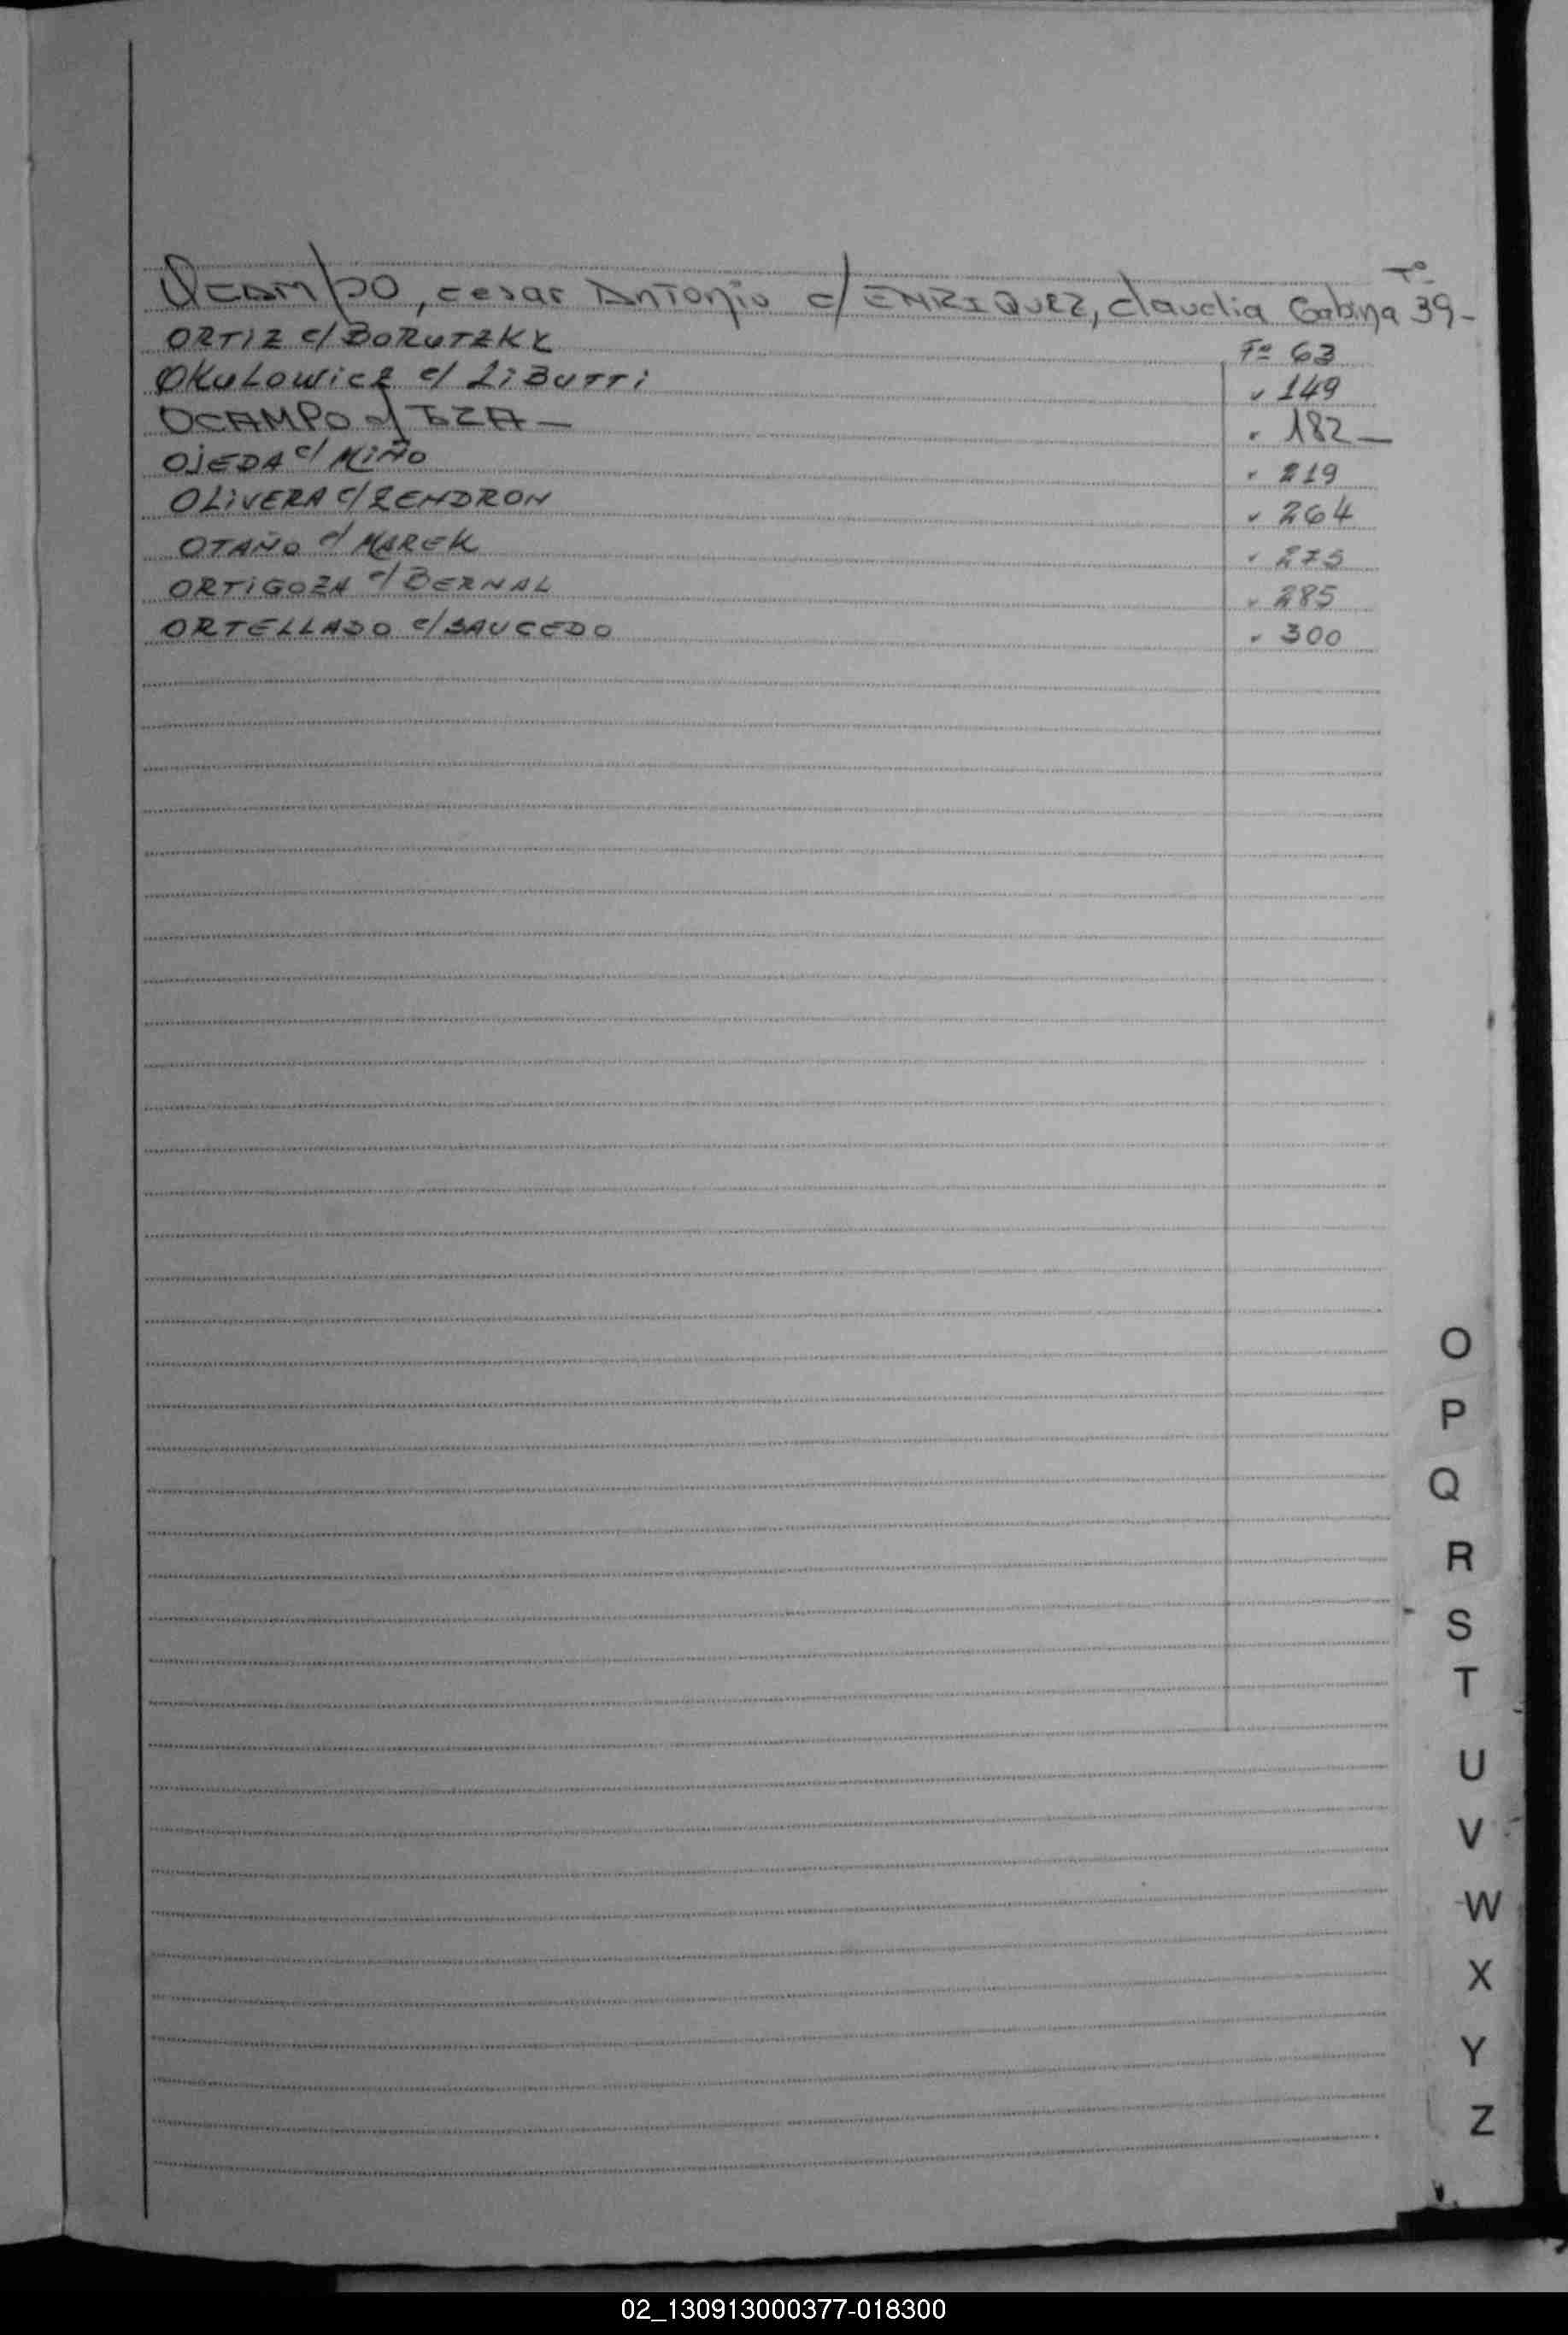 Ocampo, cesar Antonio c/ ENRIQUEZ, claudia Gabina Fº 39-
ORTIZ c/ BORUTZKY Fº 63
OKULOWICZ c/ LIBUTTI " 149
OCAMPO c/ " 182-
OJEDA c/ MIÑO " 219
OLIVERA c/ ZENDRON " 264
OTAÑO c/ MAREK " 275
ORTIGOZA c/ BERNAL " 285
ORTELLADO c/ SAUCEDO " 300
O
P
Q
R
S
T
U
V
W
X
Y
Z
02_130913000377-018300